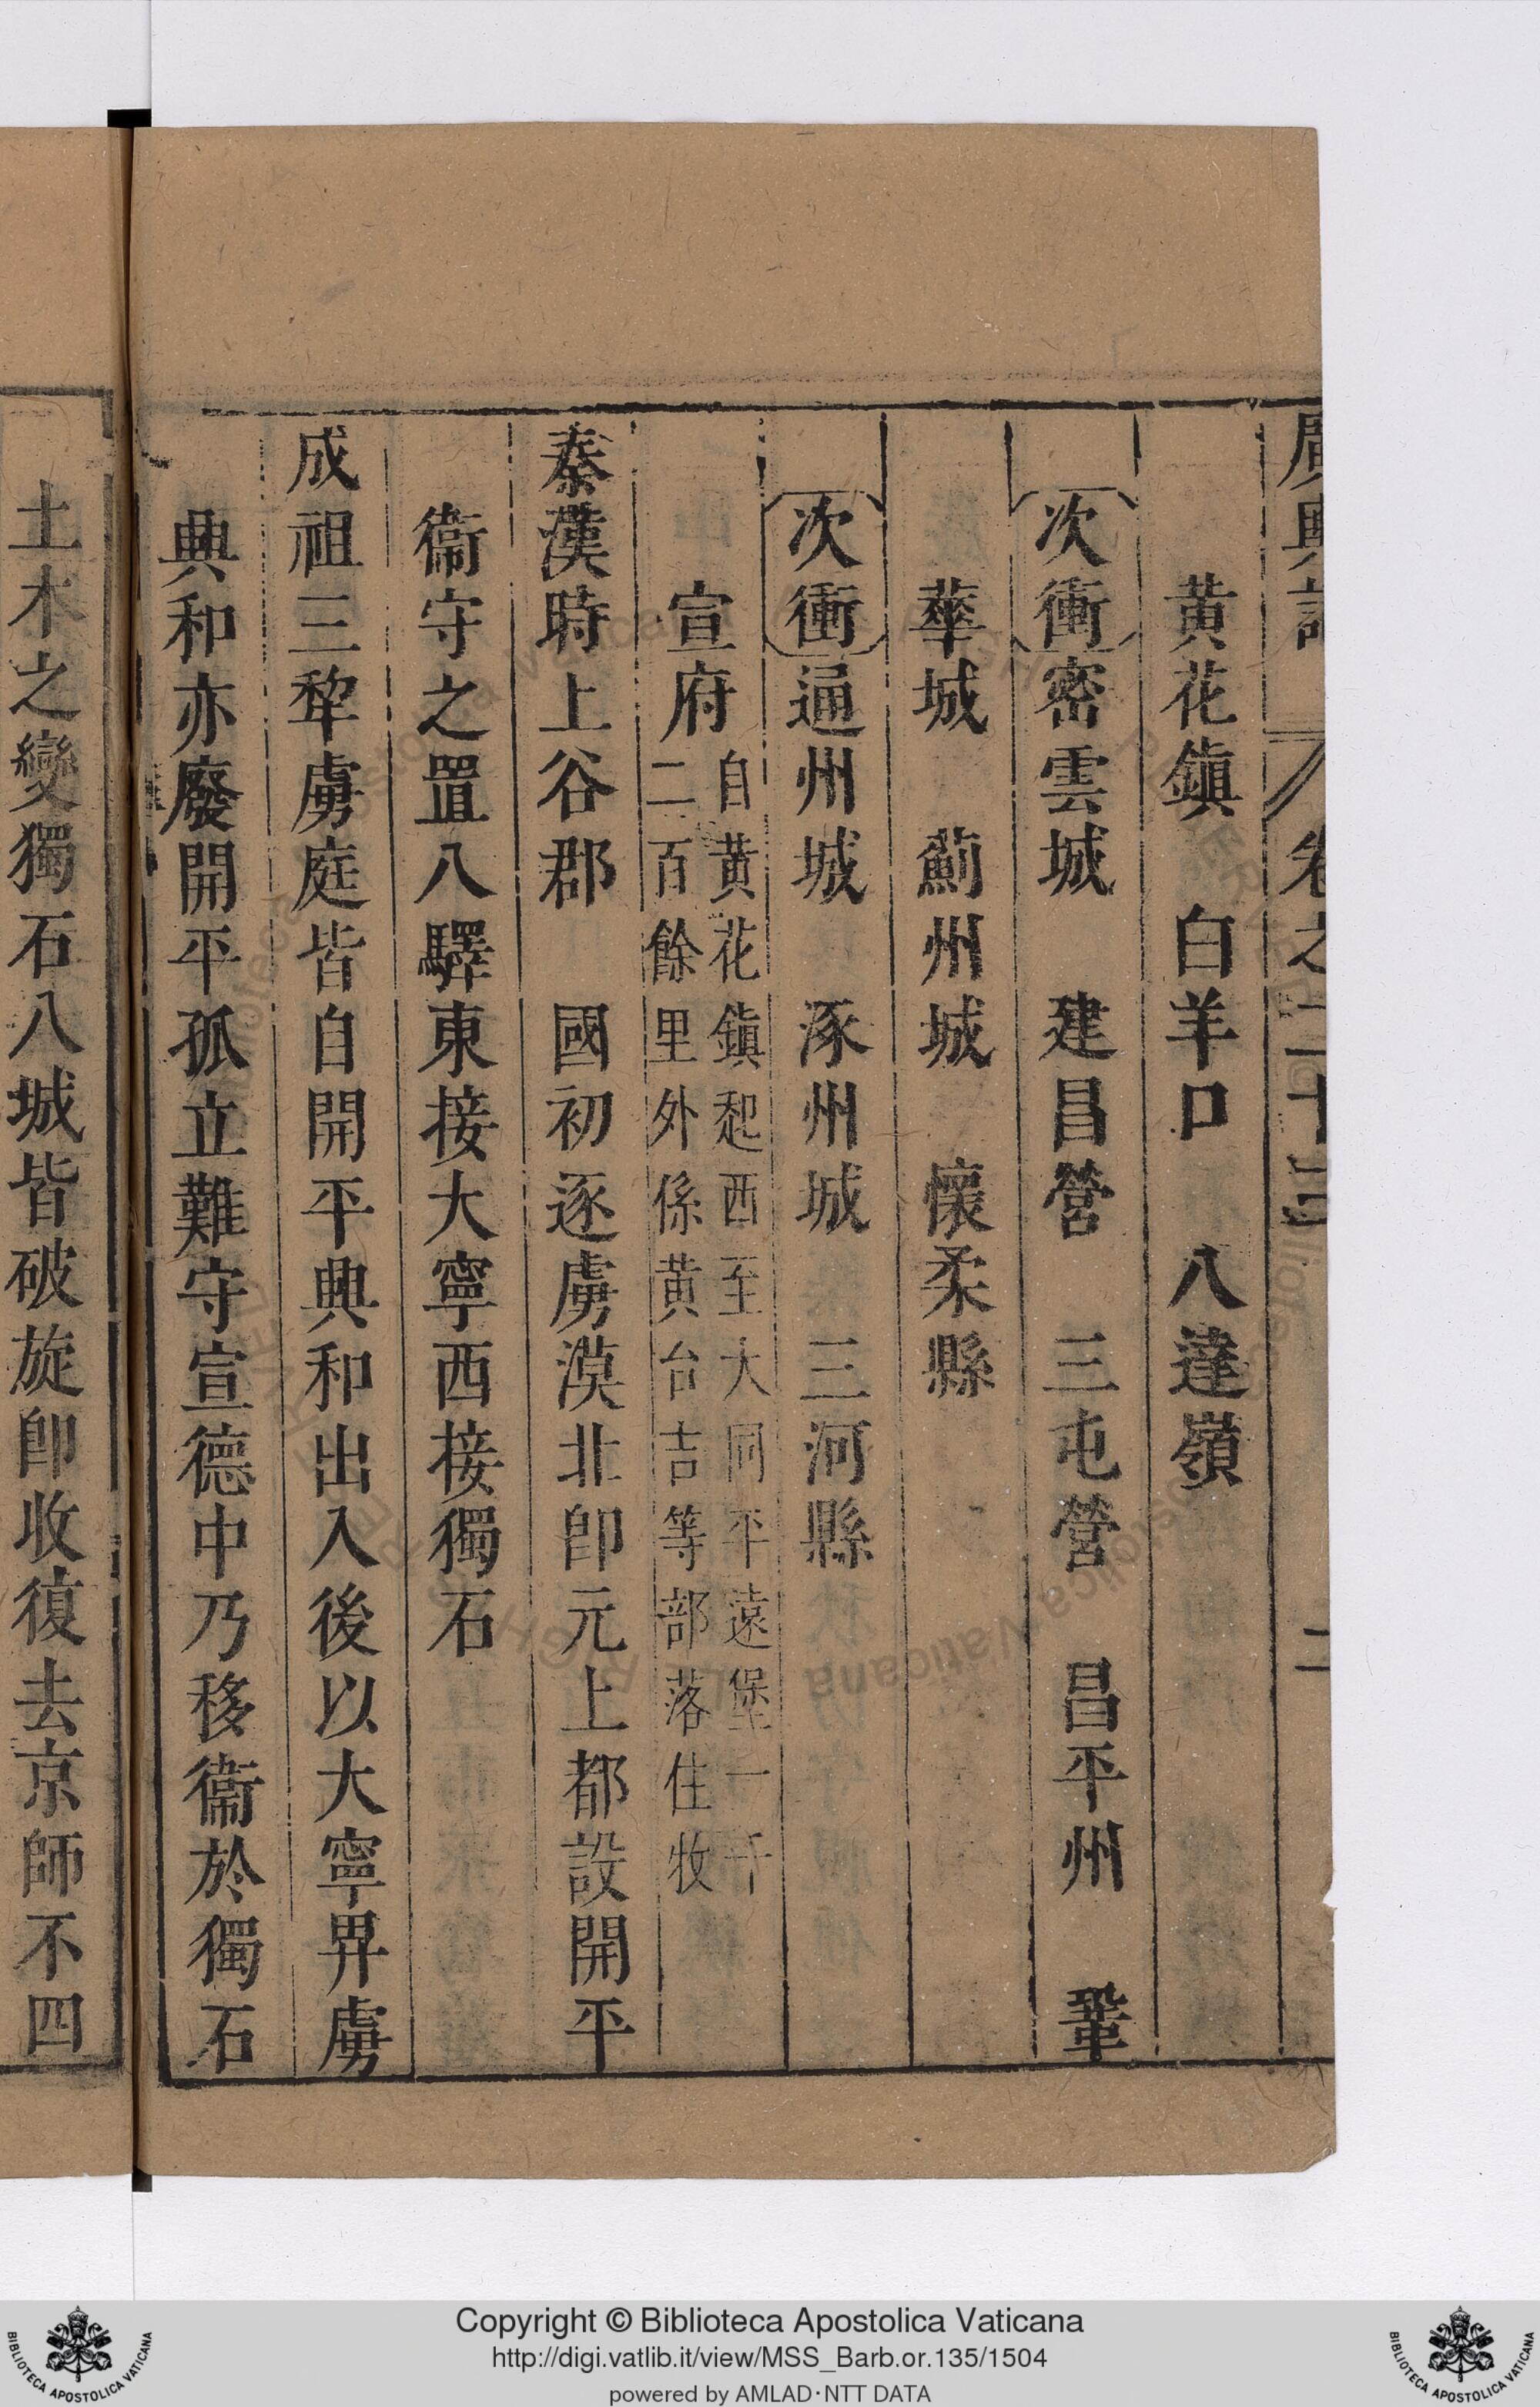 廣輿記 卷之二十三 二
黃花鎮 白羊口 八達嶺
次衝 密雲城 建昌營 三屯營 昌平州 鞏
華城 薊州城 懷柔縣
次衝 通州城 涿州城 三河縣
宣府 自黃花鎮起西至大同平遠堡一千
二百餘里外係黃台吉等部落住牧
秦漢時上谷郡 國初逐虜漠北卽元上都設開平
衞守之置八驛東接大寧西接獨石
成祖三犂虜庭皆自開平興和出入後以大寧畀虜
興和亦廢開平孤立難守宣德中乃移衞於獨石
土木之變獨石八城皆破旋卽收復去京師不四
Copyright © Biblioteca Apostolica Vaticana
http://digi.vatlib.it/view/MSS_Barb.or.135/1504
powered by AMLAD·NTT DATA
BIBLIOTECA APOSTOLICA VATICANA
BIBLIOTECA APOSTOLICA VATICANA